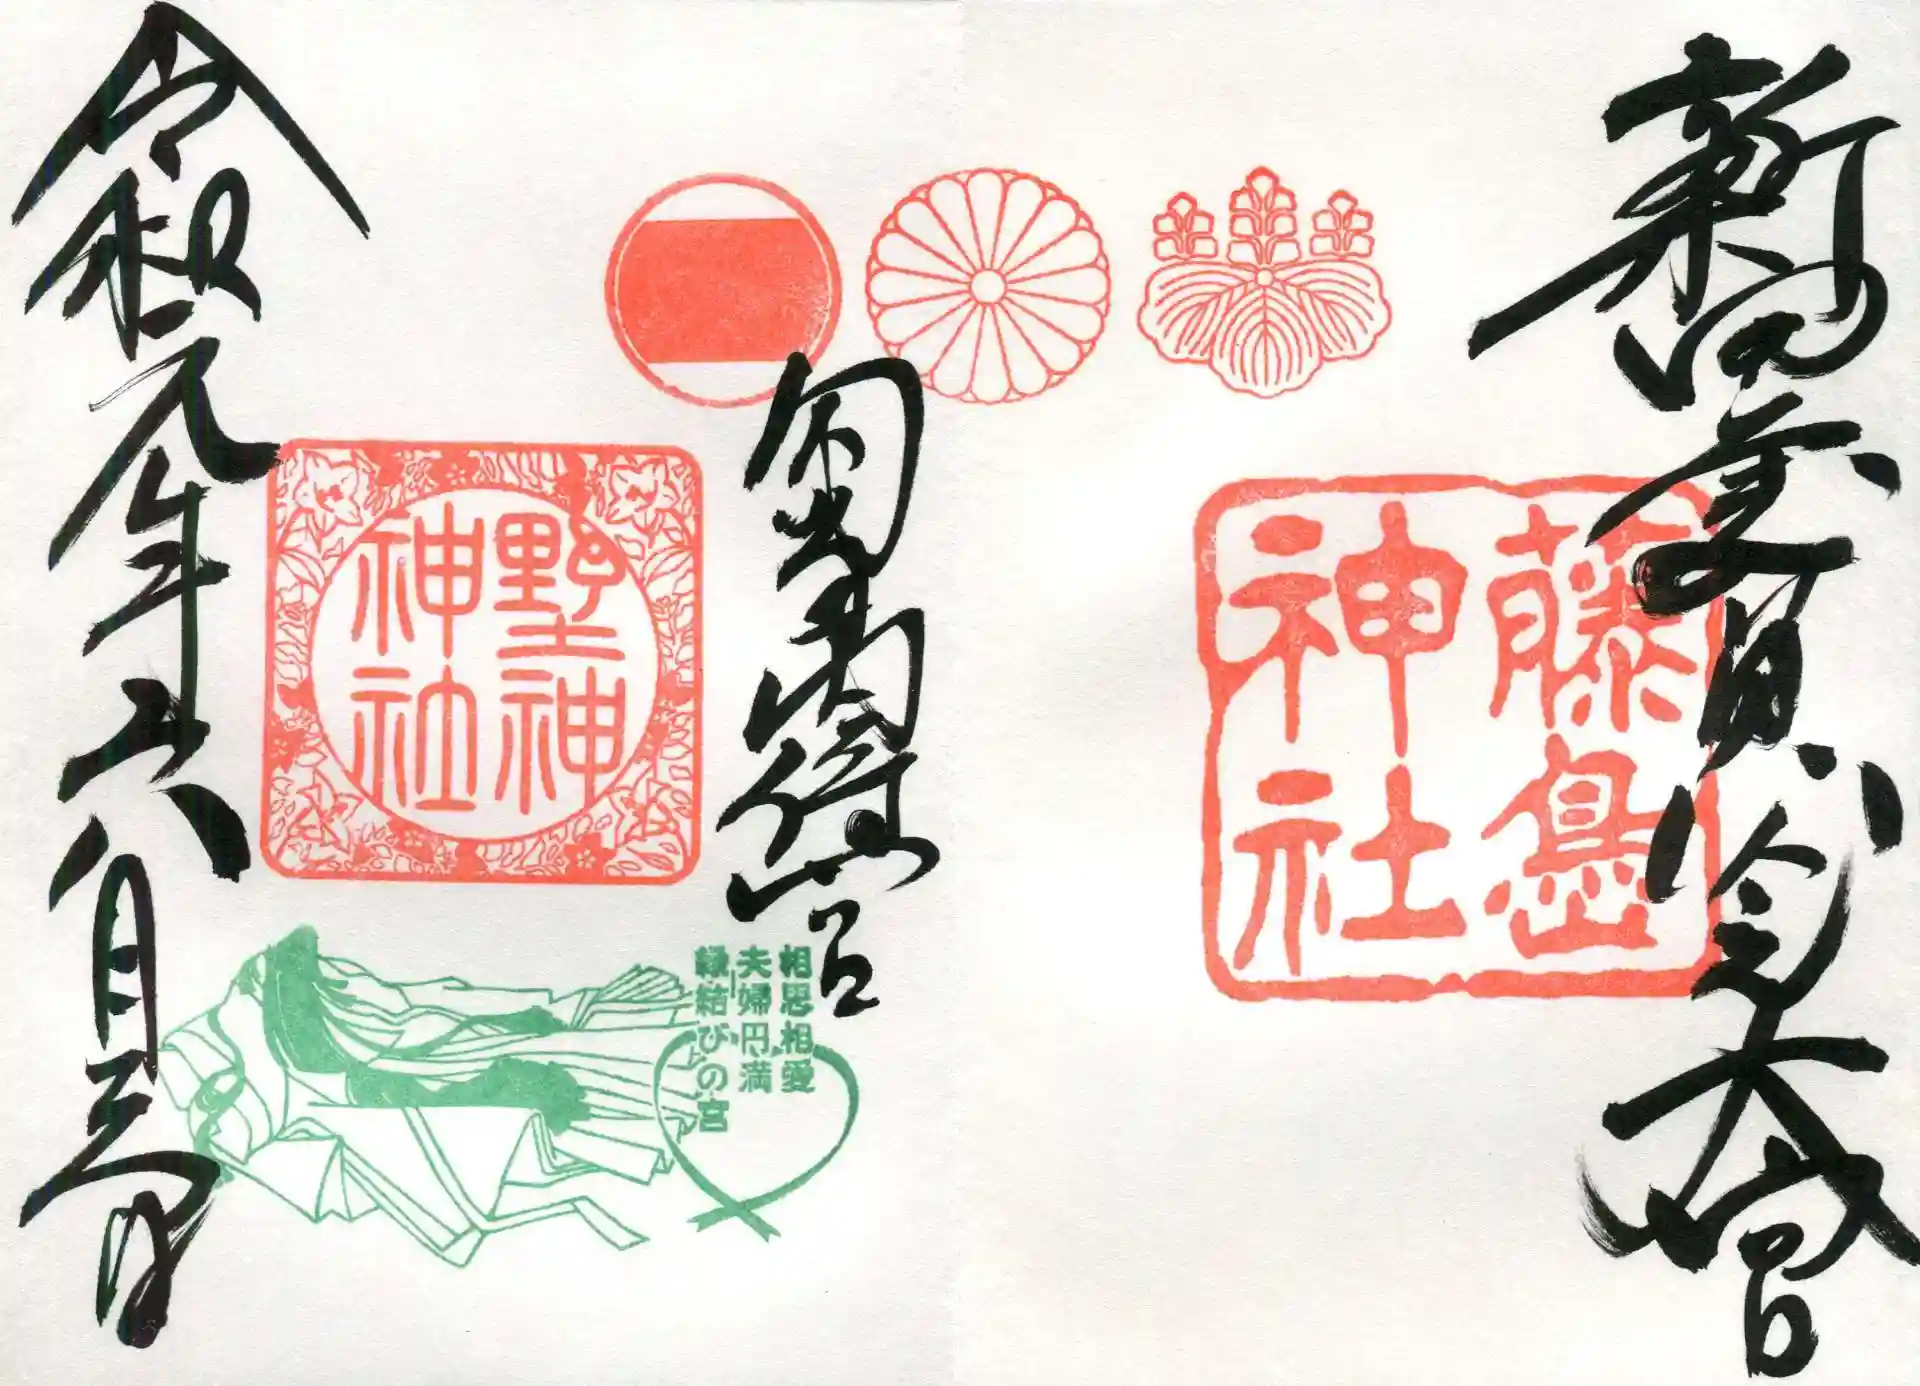 新田義貞公大宮
藤島
神社
勾當内侍宮
野神
神社
相思相愛
夫婦円満
縁結びの宮
令和元年六月三日